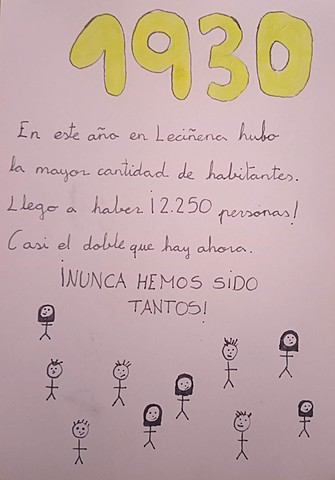 1930
En este año en Leciñena hubo
la mayor cantidad de habitantes.
Llego a haber ¡2.250 personas!
Casi el doble que hay ahora.
¡NUNCA HEMOS SIDO
TANTOS!